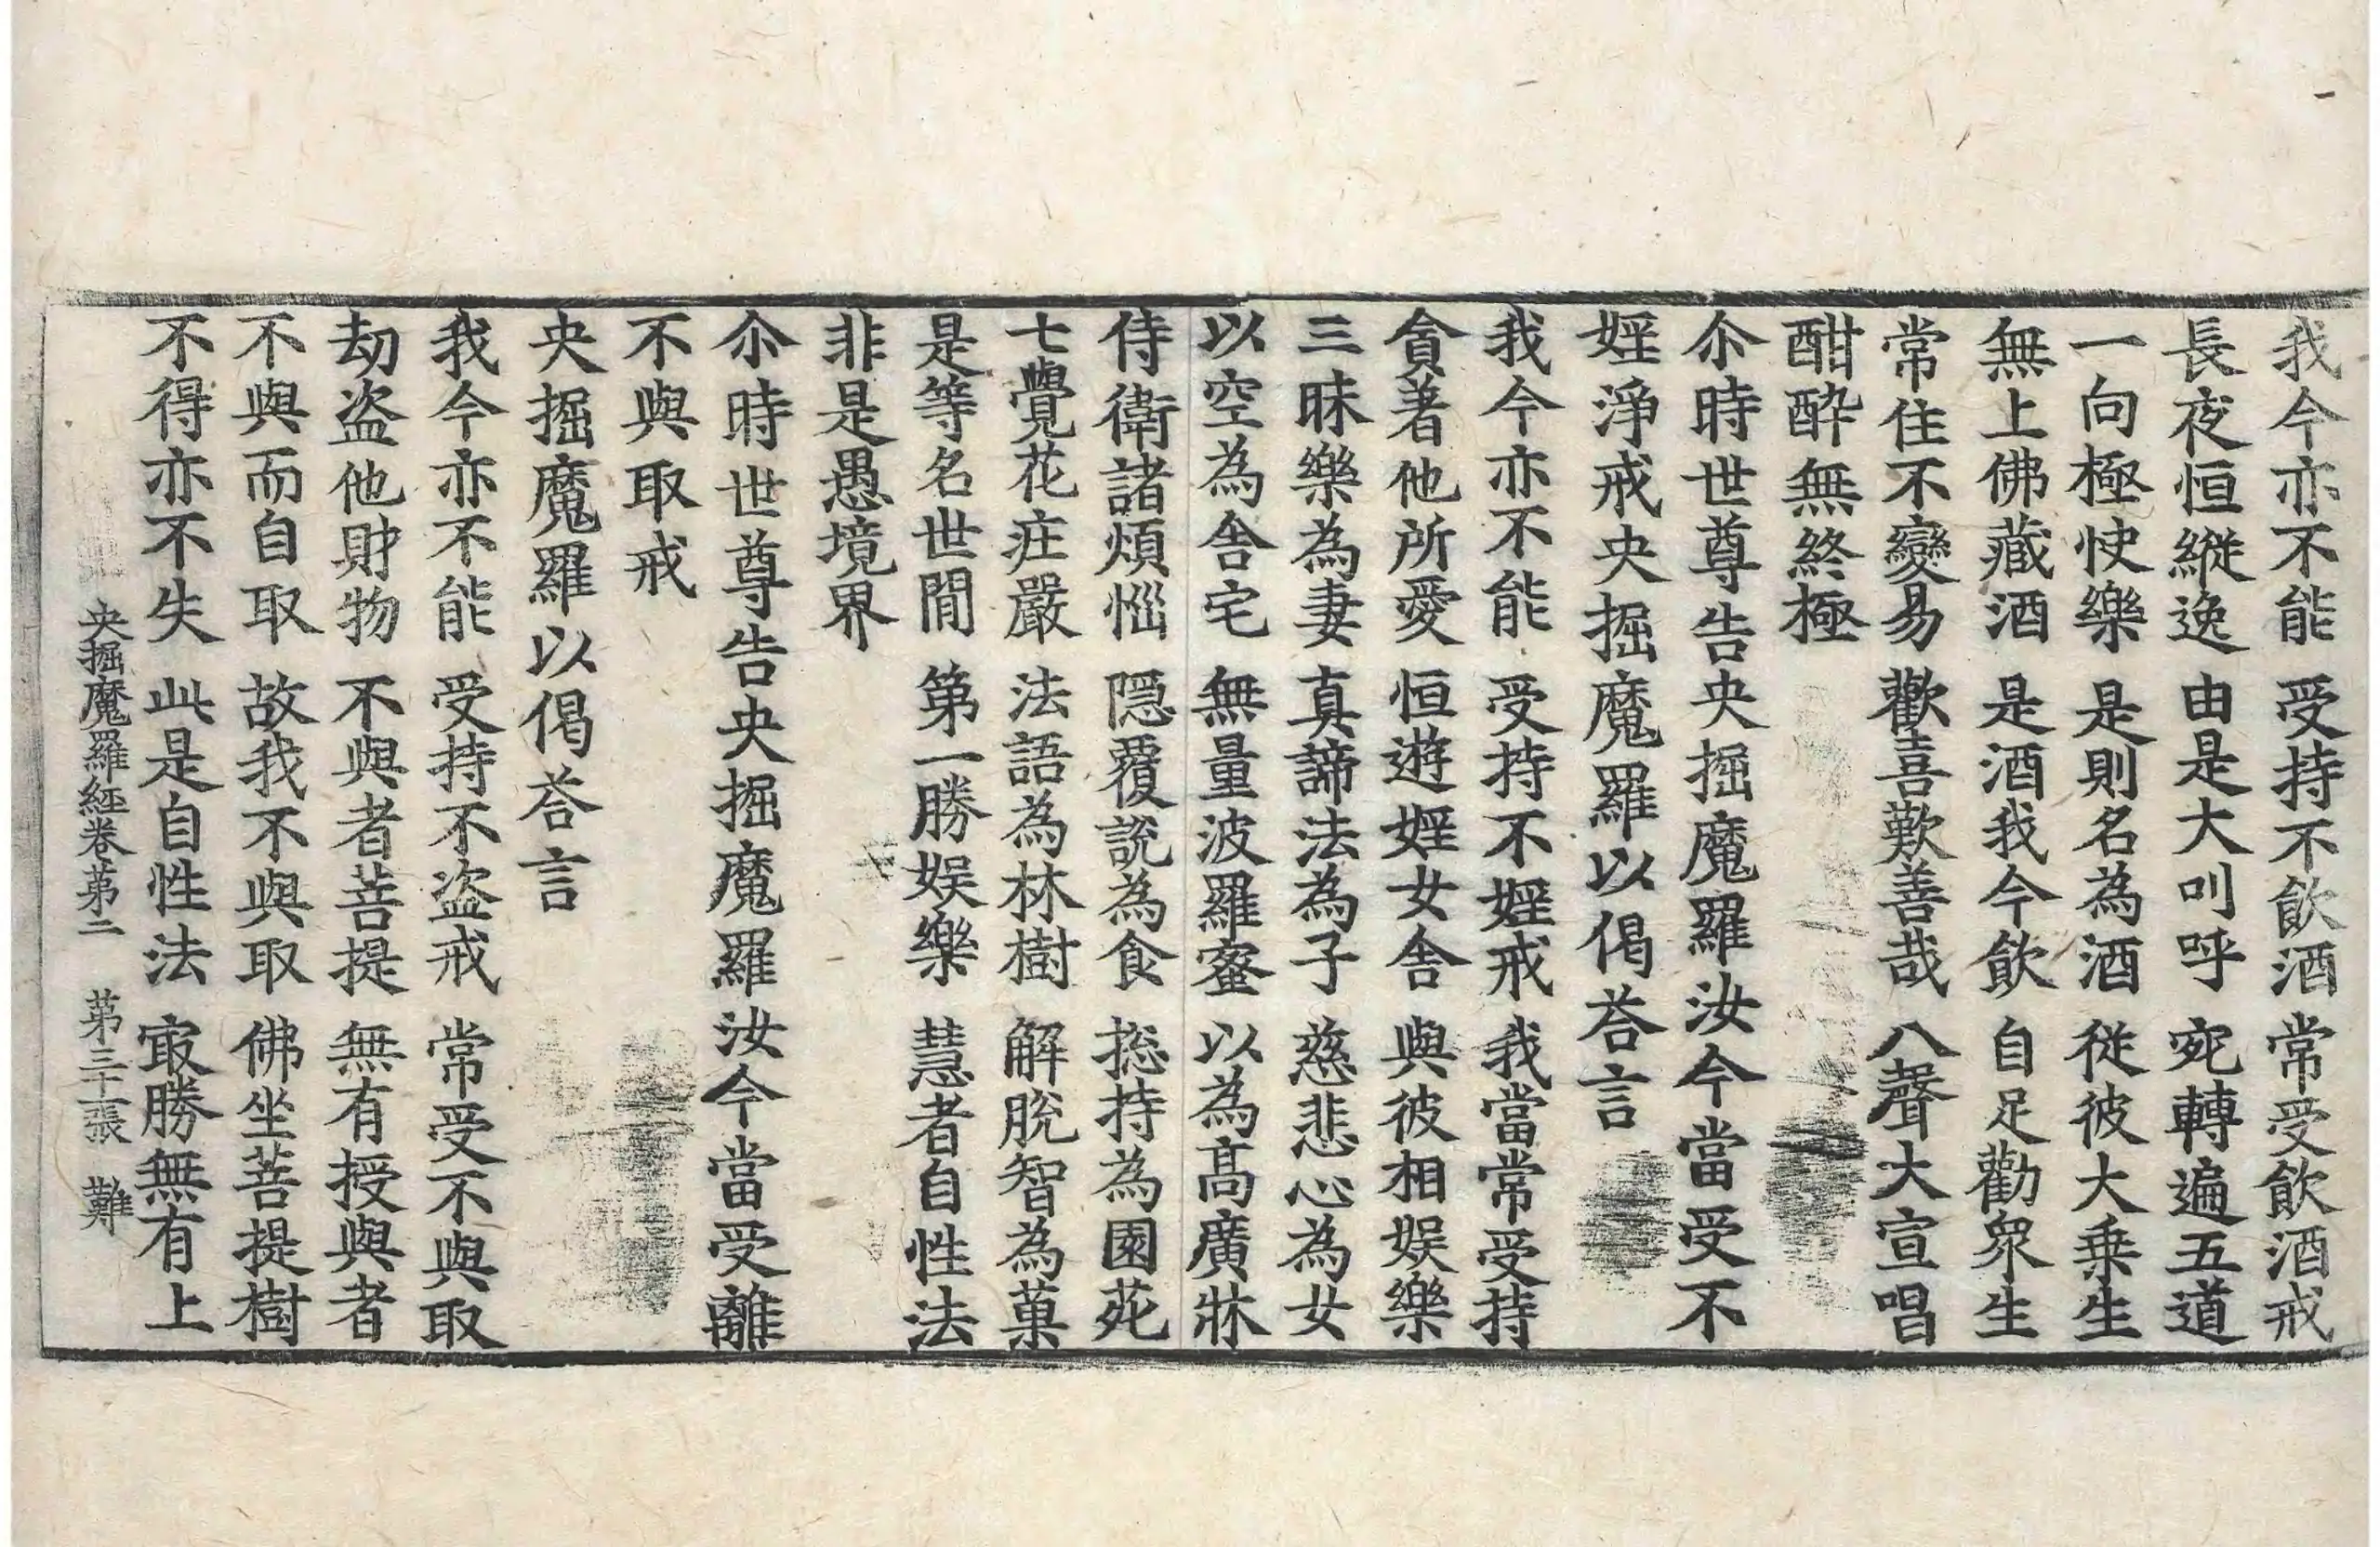 我今亦不能　受持不飮酒　常受飮酒戒
長夜恒縱逸　由是大叫呼　宛轉遍五道
一向極快樂　是則名為酒　從彼大乗生
無上佛藏酒　是酒我今飮　自足勸衆生
常住不變易　歡喜歎善哉　八聲大宣唱
酣醉無終極
尒時世尊告央掘魔羅汝今當受不
婬淨戒央掘魔羅以偈荅言
我今亦不能　受持不婬戒　我當常受持
貪著他所愛　恒遊婬女舎　與彼相娱樂
三昧樂為妻　真諦法為子　慈悲心為女
以空為舎宅　無量波羅蜜　以為髙廣牀
侍衛諸煩惱　隠覆說為食　捴持為園苑
七覺花庄嚴　法語為林樹　解脫智為菓
是等名世閒　第一勝娱樂　慧者自性法
非是愚境界
尒時世尊告央掘魔羅汝今當受離
不與取戒
央掘魔羅以偈荅言
我今亦不能　受持不盗戒　常受不與取
劫盗他財物　不與者菩提　無有授與者
不與而自取　故我不與取　佛坐菩提樹
不得亦不失　此是自性法　㝡勝無有上
央掘魔羅経卷第二　第三十張　難